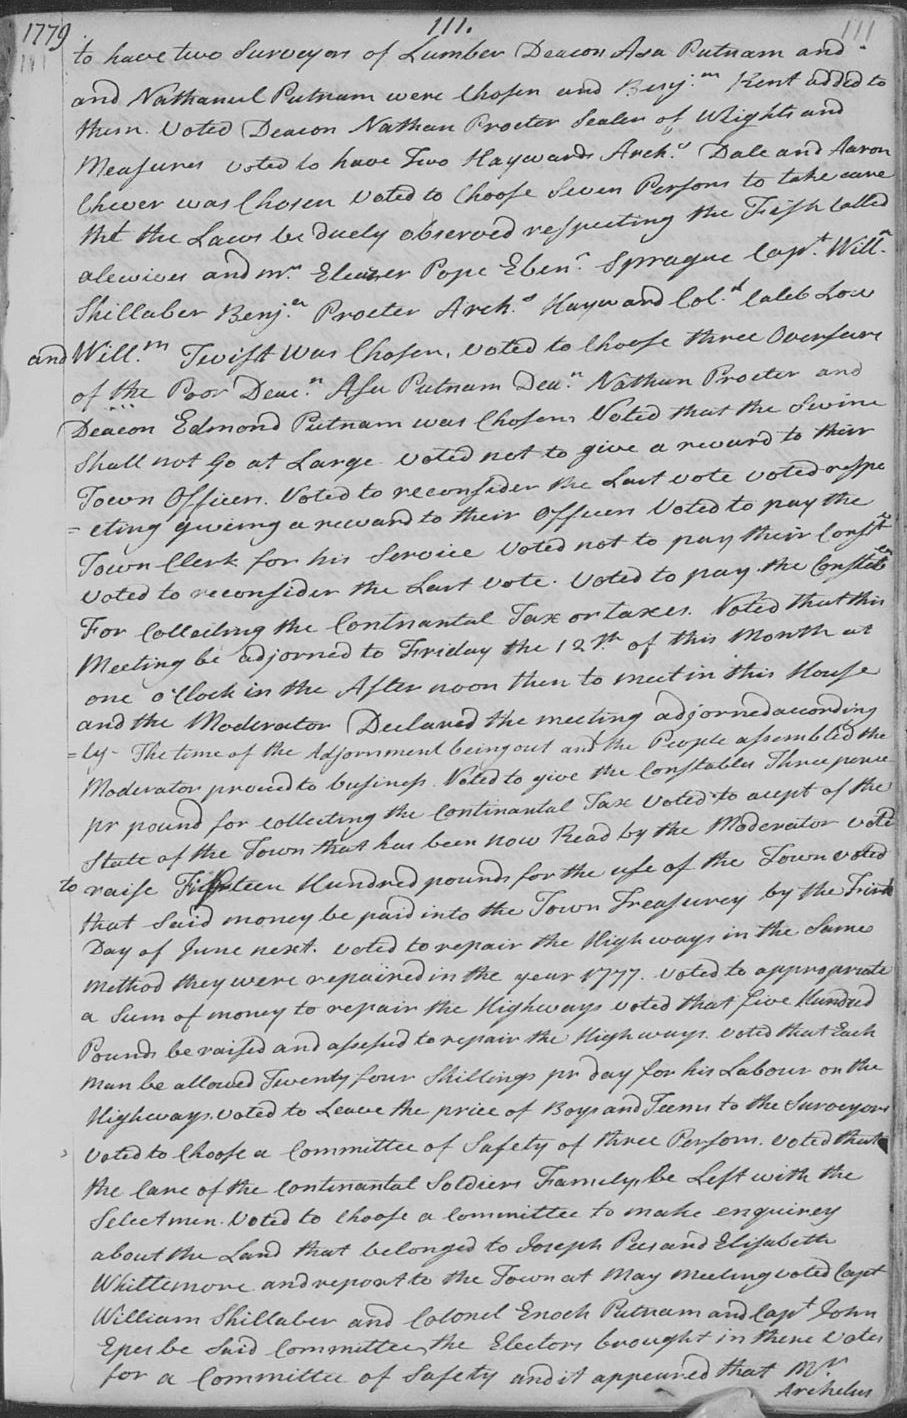 1779 111. 111
111
to have two Surveyors of Lumber Deacon Asa Putnam and
and Nathaneel Putnam were Chosen and Benj:m Kent added to
them. Voted Deacon Nathan Procter Sealer of Wights and
Measures voted to have Two Haywards Arch.s Dale and Aaron
Chever was Chosen Voted to Choose Seven Persons to take care
tht the Laws be duely observed respecting the Fish Called
alewives and mr. Eleazer Pope Eben.r Sprague Capt. Will.m
Shillaber Benj.a Procter Arch.s Hayward Col.l Caleb Low
and Will.m Twist was Chosen, voted to Choose three Overseers
of the Poor Deac.n Asa Putnam Dea.n Nathan Procter and
Deacon Edmond Putnam was Chosen Voted that the Swine
Shall not Go at Large voted not to give a reward to their
Town Officers. Voted to reconsider the Last vote voted respe
=cting giveing a reward to their Officers Voted to pay the
Town Clerk for his Service Voted not to pay their Const
Voted to reconsider the Last vote. Voted to pay the
For Collecting the Continantal Tax or taxes. Voted that this
Meeting be adjorned to Friday the 12th. of this Month at
one o'Clock in the After noon then to meet in this House
and the Moderator Declared the meeting adjorned according
=ly- The time of the Adjornment being out and the People assembled the
Moderator proceed to business. Voted to give the Constables Three pence
pr pound for collecting the Continantal Tax Voted to acept of the
State of the Town that has been now Read by the Moderator voted
to raise Fifteen Hundred pounds for the use of the Town voted
that Said money be paid into the Town Treasurey by the First
Day of June next. voted to repair the High ways in the Same
method they were repaired in the year 1777. voted to appropriate
a Sum of money to repair the Highways voted that five Hundred
Pounds be raised and assessed to repair the High ways. voted that Each
Man be allowed Twenty four Shillings pr day for his Labour on the
Highways. voted to Leave the price of Boys and Teems to the Surveyors
Voted to Choose a Committee of Safety of three Persons. voted that
the Care of the Continantal Soldiers Family, be Left with the
Selectmen. Voted to Choose a Committee to make enquirey
about the Land that belonged to Joseph Pees and Elisabeth
Whittemore and report to the Town at May meeting voted Capt
William Shillaber and Colonel Enoch Putnam and Capt John
Epes be Said Committee, the Electors brought in there Votes
for a Committee of Safety and it appeared that Mr.
Archelus